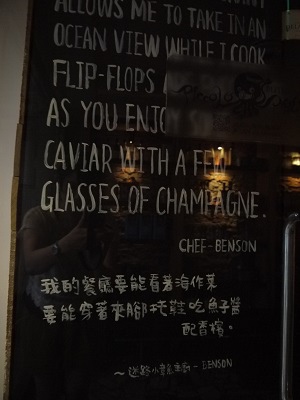 ALLOWS ME TO TAKE IN AN
OCEAN VIEW WHILE I COOK
FLIP-FLOPS
AS YOU ENJOY
CAVIAR WITH A FEW
GLASSES OF CHAMPAGNE.
CHEF-BENSON
我的餐廳要能看著海作菜
要能穿著夾腳托鞋吃魚子醬
配香檳。
～迷路小章魚主廚-BENSON